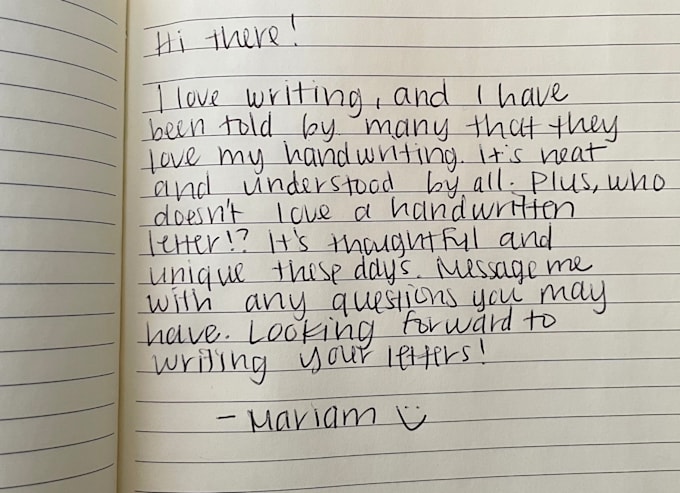 Hi there!
I love writing, and I have
been told by many that they
love my handwriting. It's neat
and understood by all. Plus, who
doesn't love a handwritten
letter!? It's thoughtful and
unique these days. Message me
with any questions you may
have. Looking forward to
writing your letters!
- Mariam